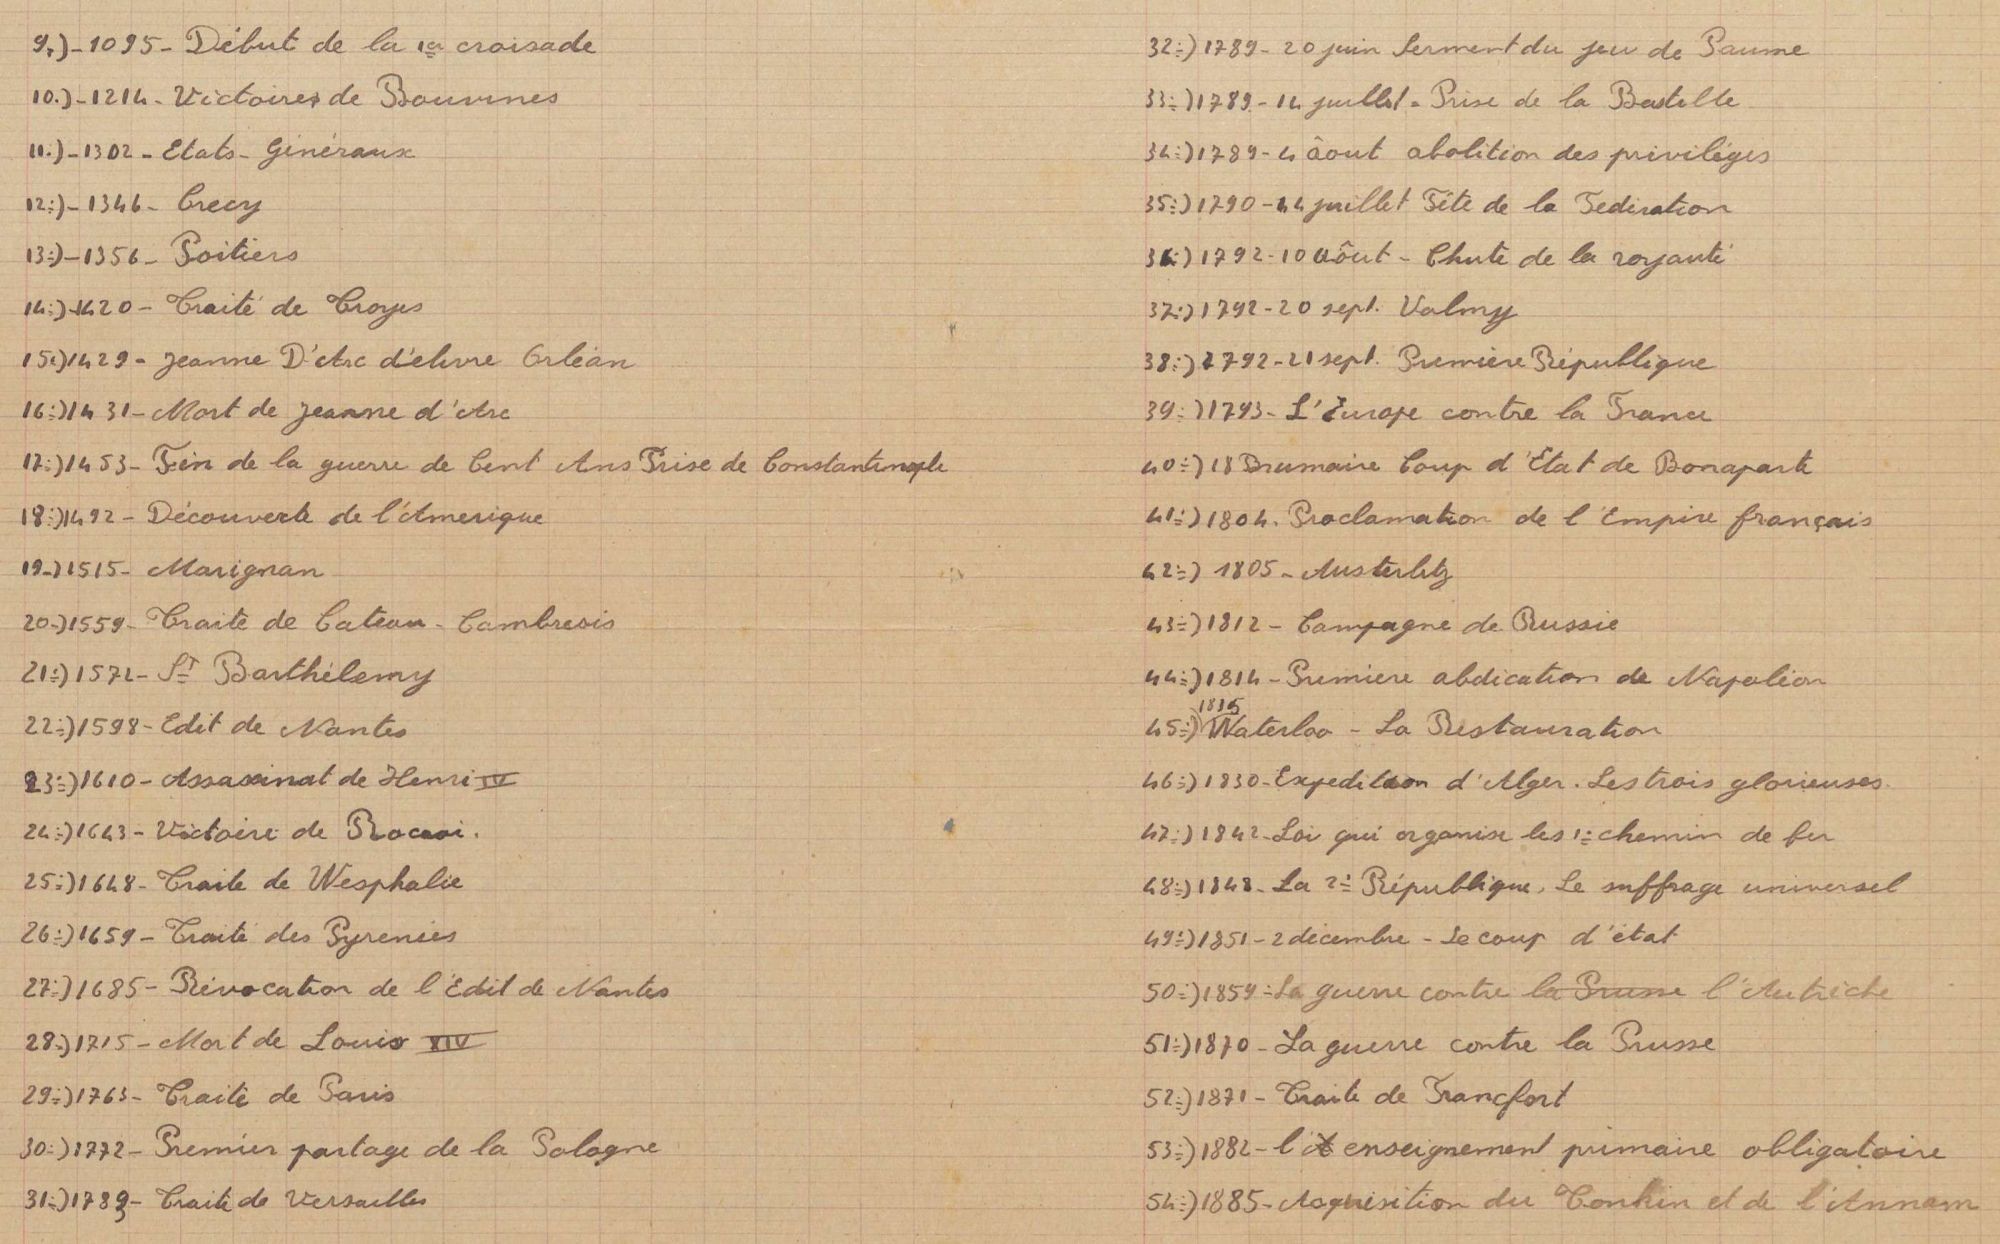 9.)-1095- Début de la 1er croisade
10.)-1214- Victoires de Bouvines
11.)-1302- Etats- Généraux
12:)-1346- Crecy
13:)-1356- Poitiers
14:)-1420- Traité de Troyes
15:)1429- Jeanne D'Arc d'élivre Orléan
16:)1431- Mort de Jeanne d'Arc
17:)1453- Fin de la guerre de Cent Ans Prise de Constantinople
18:)1492- Découverte de l'Amerique
19-)1515- Marignan
20-)1559- Traité de Cateau - Cambresis
21:)1572- St Barthélemy
22:)1598- Edit de Nantes
23:)1610- Assassinat de Henri IV
24:)1643- Victoire de Rocroi.
25:)1648- Traite de Wesphalie
26:)1659- Traité des Pyrenées
27:)1685- Révocation de l'Edit de Nantes
28-)1715- Mort de Louis XIV
29:)1763- Traité de Paris
30:)1772- Premier partage de la Pologne
31:)1783- Traité de Versailles
32:)1789- 20 juin Serment du jeu de Paume
33:)1789- 14 juillet- Prise de la Bastille
34:)1789- 4 âout abolition des priviléges
35:)1790- 14 juillet Fête de la Fedération
36:)1792- 10 Aôut - Chute de la royauté
37:)1792- 20 sept. Valmy
38:)1792- 21 sept. Première République
39:)1793- L'Europe contre la France
40:)18 Brumaire Coup d'Etat de Bonaparte
41:)1804. Proclamation de l'Empire français
42:) 1805- Austerlitz
43:)1812- Campagne de Russie
44:)1814- Première abdication de Napoléon
1815
45:) Waterloo - La Restauration
46:)1830- Expedition d'Alger. Les trois glorieuses.
47:)1842- Loi qui organise les 1: chemin de fer
48:)1848- La 2: République. Le suffrage universel
49:)1851- 2 décembre - Le coup d'état
50:)1859- La guerre contre la Prusse l'Autriche
51:)1870- La guerre contre la Prusse
52:)1871- Traité de Francfort
53:)1882- l'enseignement primaire obligatoire
54:)1885- Acquisition du Tonkin et de l'Annam